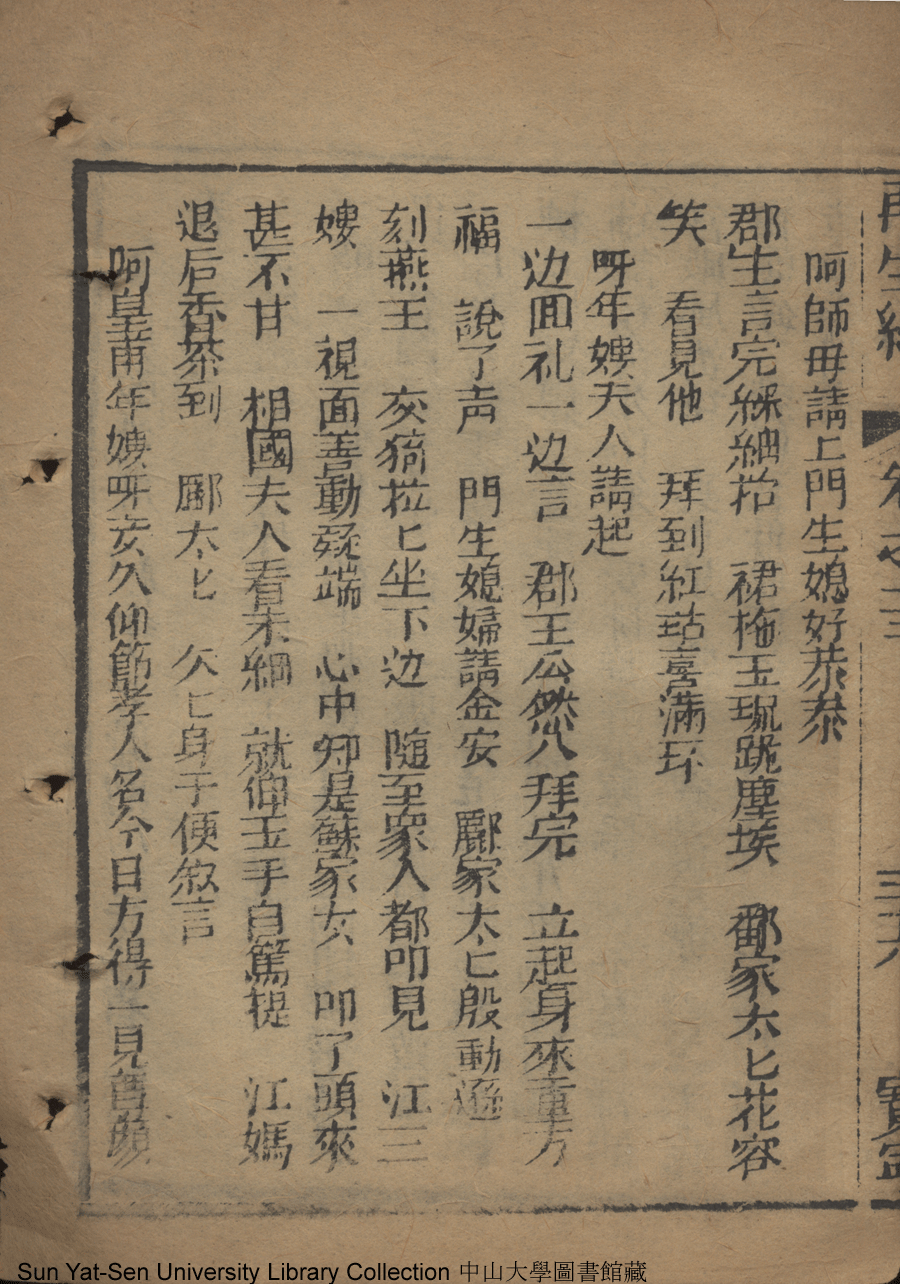 再生緣 卷之三 三十八 寶
呵師母請上門生媳好恭恭
郡生言完綵紬抬 裙拖玉珮跪塵埃 酈家太匕花容
笑 看見他 拜到紅毡喜滿环
呀年嫂夫人請起
一边囬礼一边言 郡王公然八拜完 立起身來重万
福 說了声 門生媳婦請金安 酈家太匕殷動遜
刻燕王 灰猗拉匕坐下边 随至衆人都叩見 江三
嫂 一視面善動疑端 心中知是蘇家女 叩了頭來
甚不甘 相國夫人看未細 就伸玉手自篤提 江媽
退后香茶到 酈太匕 欠匕身子便叙言
呵皇甫年嫂呀妾久仰節孝人名今日方得一見尊顔
Sun Yat-Sen University Library Collection 中山大學圖書館藏